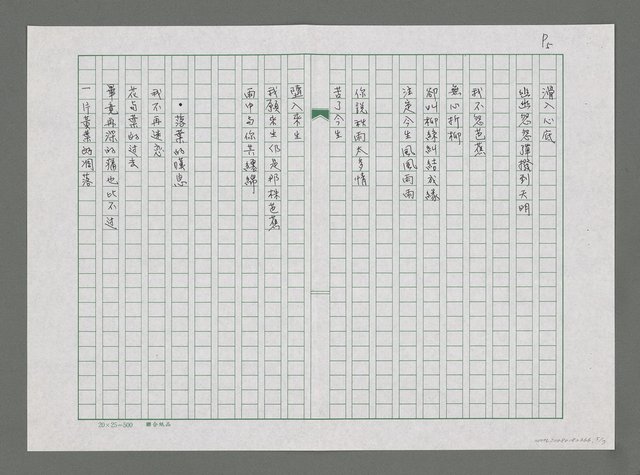 P5
滑入心底
幽幽怨怨彈撥到天明
我不怨芭蕉
無心折柳
卻叫柳絲糾結我緣
注定今生風風雨雨
你說秋雨太多情
苦了今生
墮入來生
我願來生仍是那株芭蕉
雨中与你共纏綿
•落葉的嘆息
我不再迷戀
花与葉的过去
畢竟再深的痛也比不过
一片黃葉的凋落
20×25=500 聯合紙品